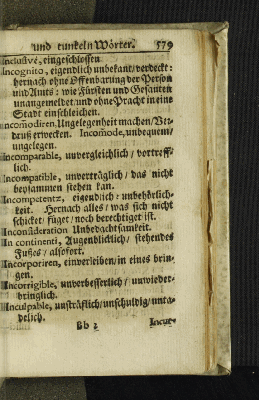 und tunkeln Wörter. 579
Inclusivè, eingeschlossen.
Incognito, eigendlich unbekant/verdeckt:
hernach ohne Offenbarung der Person
und Amts: wie Fürsten und Gesanten
unangemeldet/und ohne Pracht in eine
Stadt einschleichen.
Incomodiren, Ungelegenheit machen/Ver-
druß erwecken. Incomode, unbequem/
ungelegen.
Incomparable, unvergleichlich/vortreff-
lich.
Incompatible, unverträglich/das nicht
beysammen stehen kan.
Incompetentz, eigendlich: unbehörlich-
keit. Hernach alles/was sich nicht
schicket/füget/noch berechtiget ist.
Inconsideration Unbedachtsamkeit.
In continenti, Augenblicklich/stehendes
Fußes/alsofort.
Incorporiren, einverleiben/in eines brin-
gen.
Incorrigible, unverbesserlich/unwieder-
bringlich.
Inculpable, unsträflich/unschuldig/unta-
delich.
Bb 2 Incur-